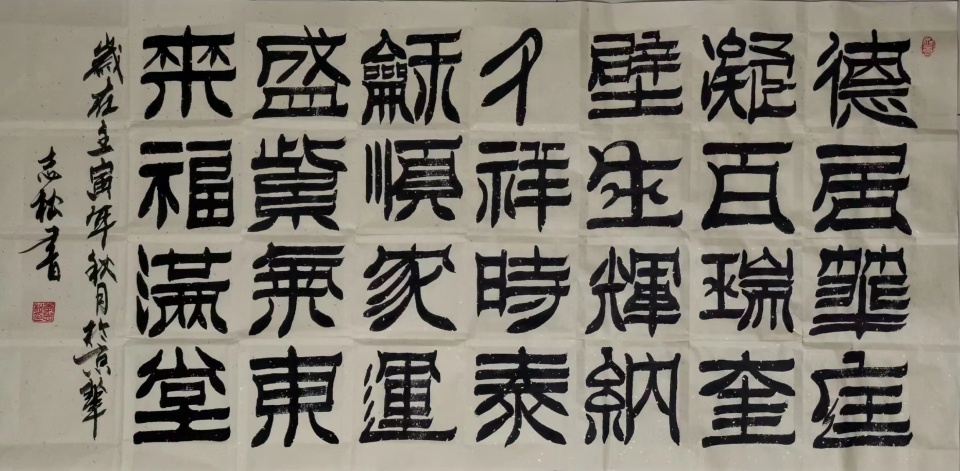 德居華庭
凝百瑞奎
壁生輝納
千祥時泰
龢順家運
盛紫炁東
来福滿堂
歲在壬寅年秋月於京華
志松書